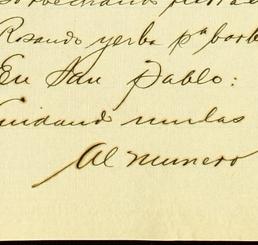 Rosando yerba pª barb
En San Pablo:
uidand mulas
Al munero